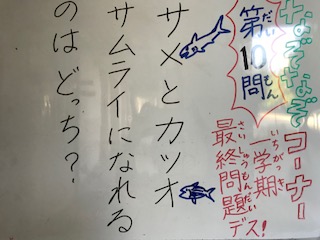 なぞなぞコーナー
第10問
だい もん
一学期
いちがっき
最終問題デス!
さいしゅうもんだい
サメとカツオ
サムライになれる
のはどっち?